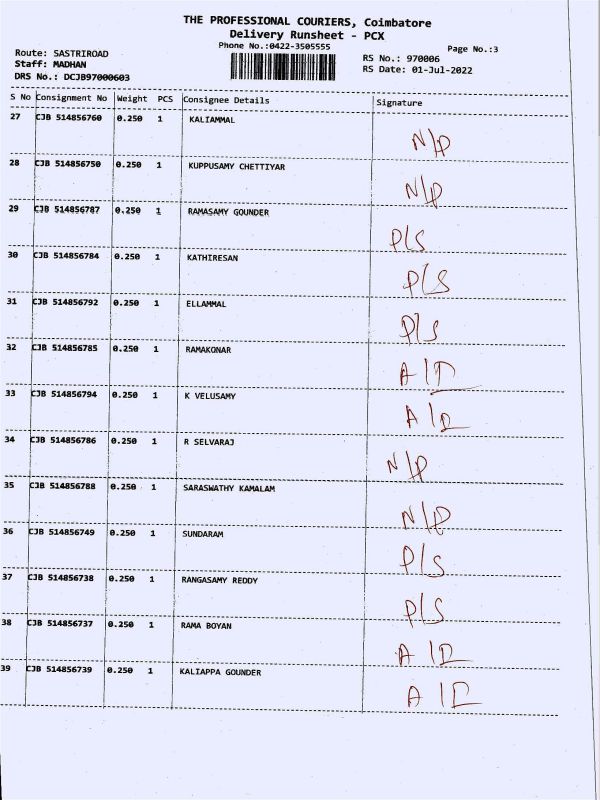 THE PROFESSIONAL COURIERS, Coimbatore
Delivery Runsheet - PCX
Phone No.:0422-3505555
Page No.:3
Route: SASTRIROAD
Staff: MADHAN
DRS No.: DCJB97000603
RS No.: 970006
RS Date: 01-Jul-2022
S No Consignment No Weight PCS Consignee Details Signature
27 CJB 514856760 0.250 1 KALIAMMAL N/P
28 CJB 514856750 0.250 1 KUPPUSAMY CHETTIYAR N/P
29 CJB 514856787 0.250 1 RAMASAMY GOUNDER P/S
30 CJB 514856784 0.250 1 KATHIRESAN P/S
31 CJB 514856792 0.250 1 ELLAMMAL P/S
32 CJB 514856785 0.250 1 RAMAKONAR
33 CJB 514856794 0.250 1 K VELUSAMY
34 CJB 514856786 0.250 1 R SELVARAJ N/P
35 CJB 514856788 0.250 1 SARASWATHY KAMALAM N/P
36 CJB 514856749 0.250 1 SUNDARAM P/S
37 CJB 514856738 0.250 1 RANGASAMY REDDY P/S
38 CJB 514856737 0.250 1 RAMA BOYAN
39 CJB 514856739 0.250 1 KALIAPPA GOUNDER